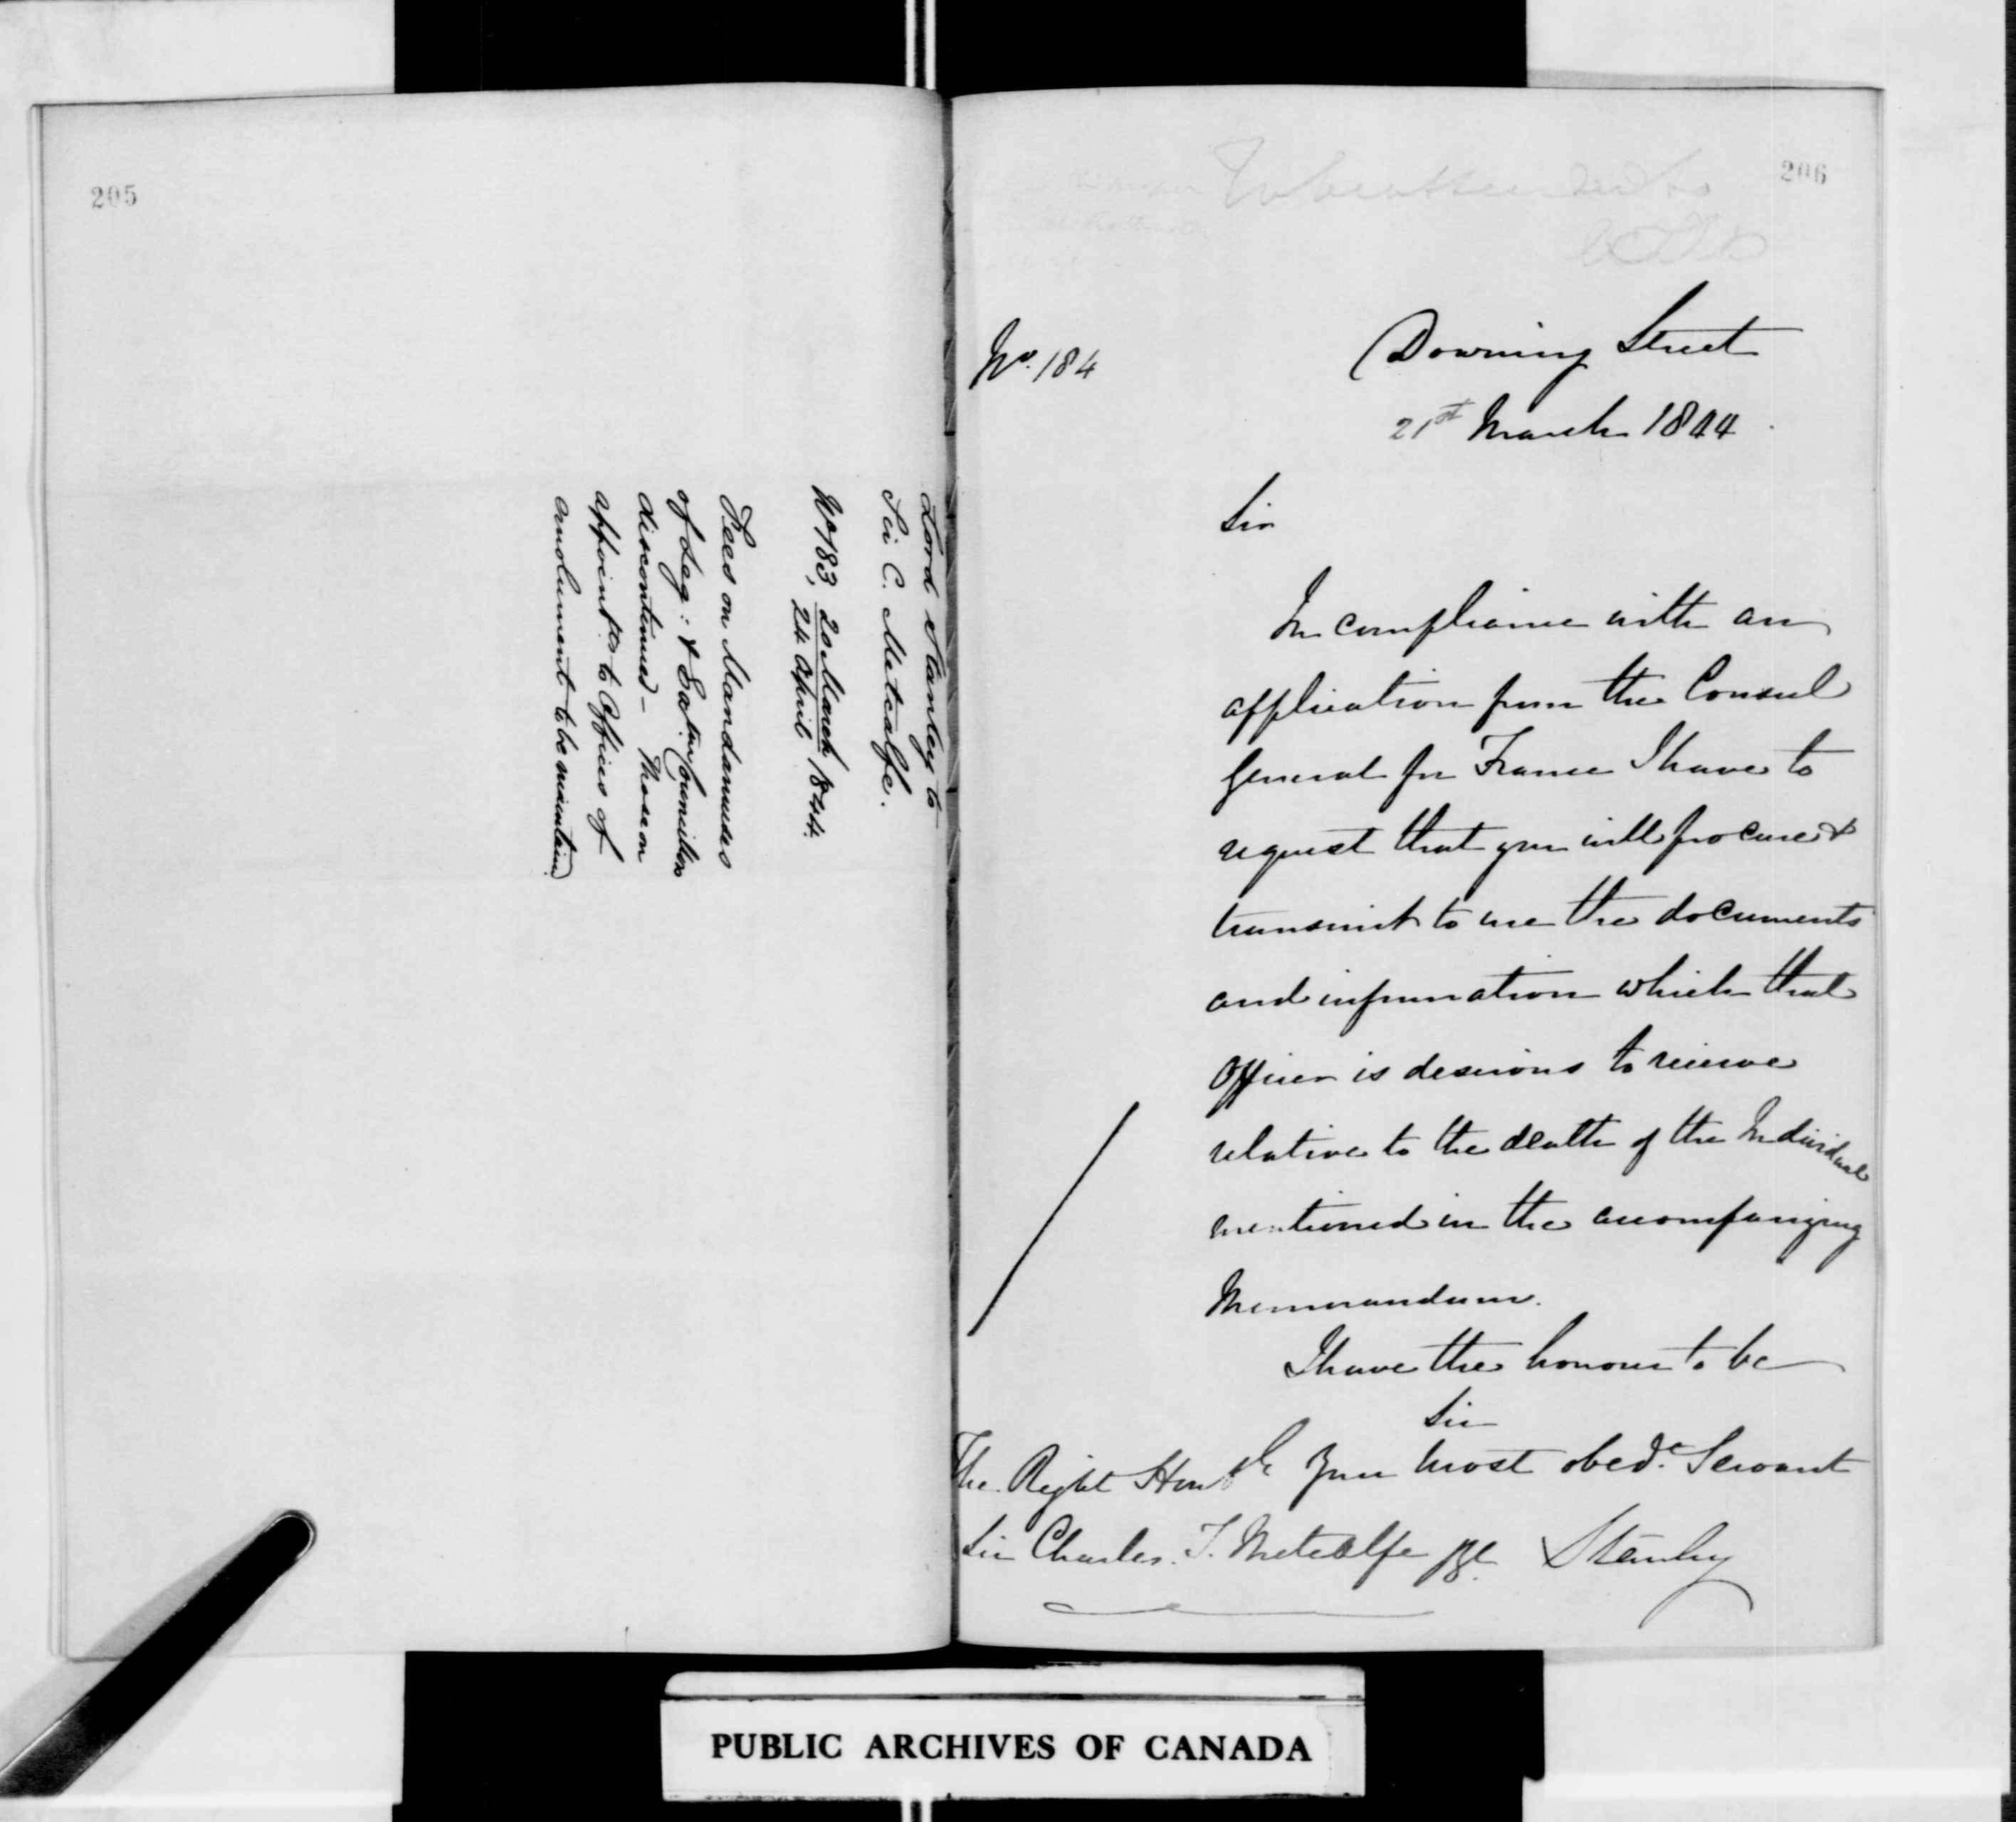 205
Lord Stanley to
Sir C. Metcalfe.
No 183, 20 March 1844.
24 April
Fees on Mandamuses
of Leg: & Exve. Councillors
discontinued – Those on
appointts. to Offices of
emolument to be maintained
206
To be attended to
No. 184
Downing Street
21st March 1844.
Sir
In compliance with an
application from the Consul
General for France I have to
request that you will procure &
transmit to me the documents
and information which that
Officer is desirous to receive
relative to the death of the Individual
mentioned in the accompanying
Memorandum.
I have the honour to be
Sir
Your most obedt. Servant
Stanley
The Right Honble
Sir Charles. T. Metcalfe Bt.
PUBLIC ARCHIVES OF CANADA